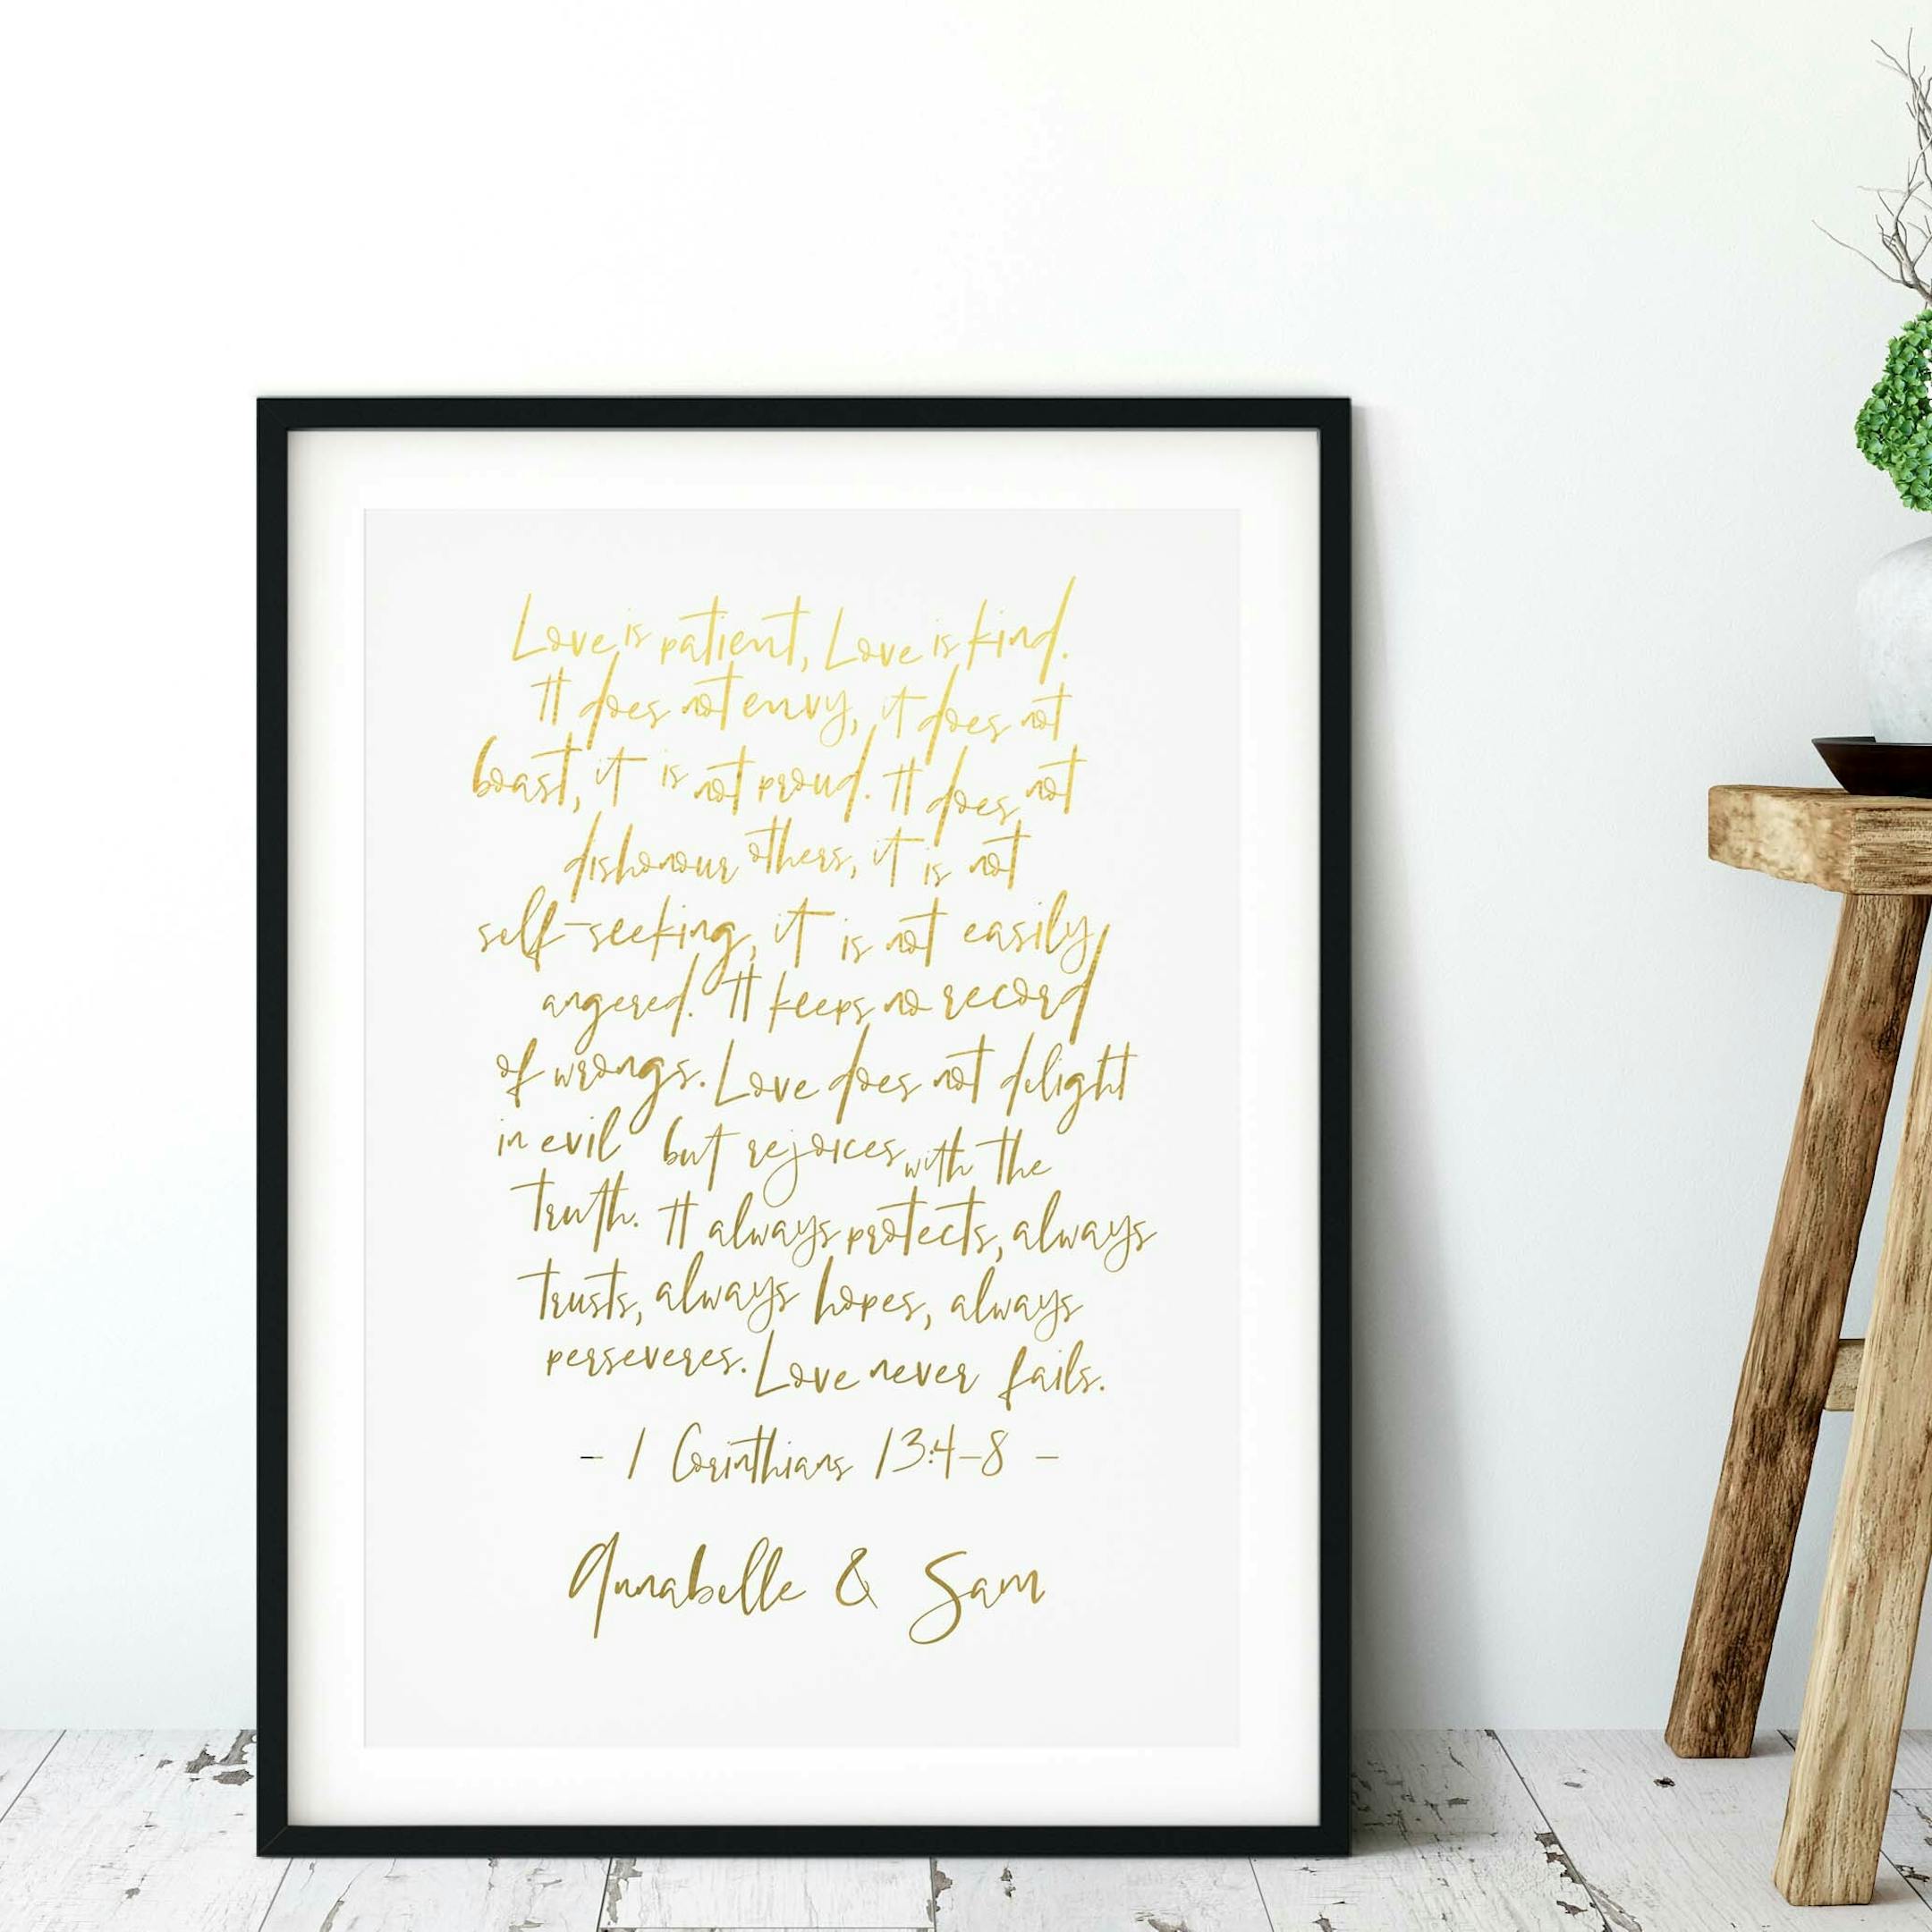 Love is patient, Love is kind.
It does not envy, it does not
boast, it is not proud. It does not
dishonour others, it is not
self-seeking, it is not easily
angered. It keeps no record
of wrongs. Love does not delight
in evil but rejoices with the
truth. It always protects, always
trusts, always hopes, always
perseveres. Love never fails.
- 1 Corinthians 13:4-8 -
Annabelle & Sam